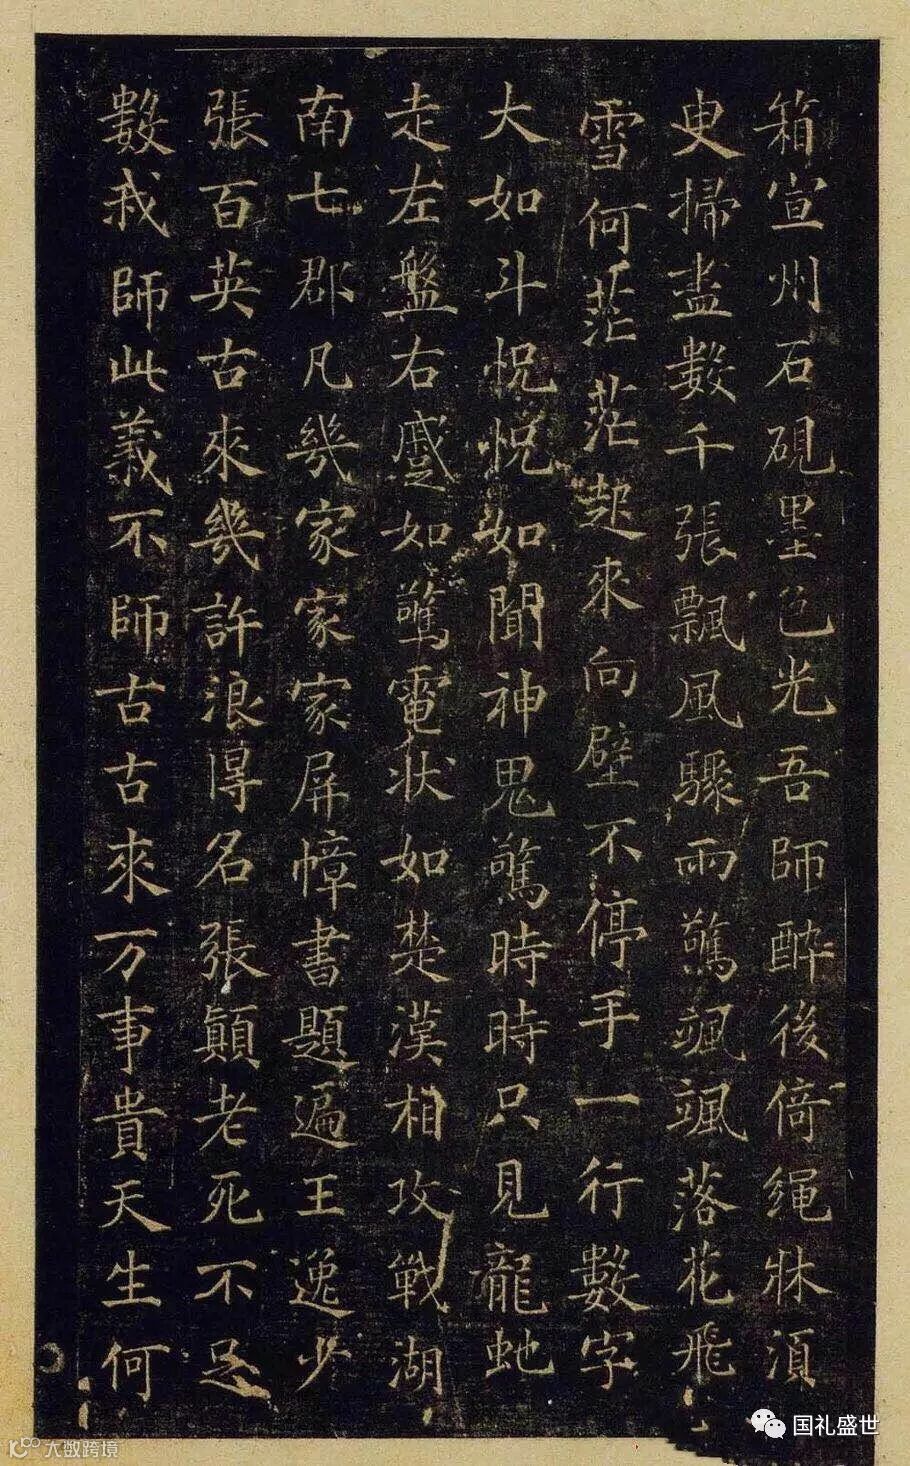 箱宣州石硯墨色光吾師醉後倚繩牀湏
臾掃盡數千張飄風驟雨驚颯颯落花飛
雪何茫茫起來向壁不停手一行數字
大如斗怳怳如聞神鬼驚時時只見龍虵
走左盤右蹙如驚電状如楚漢相攻戰湖
南七郡凡幾家家家屏幛書題遍王逸少
張百英古來幾許浪得名張顛老死不足
數我師此義不師古古來万事貴天生何
国礼盛世
大数跨境